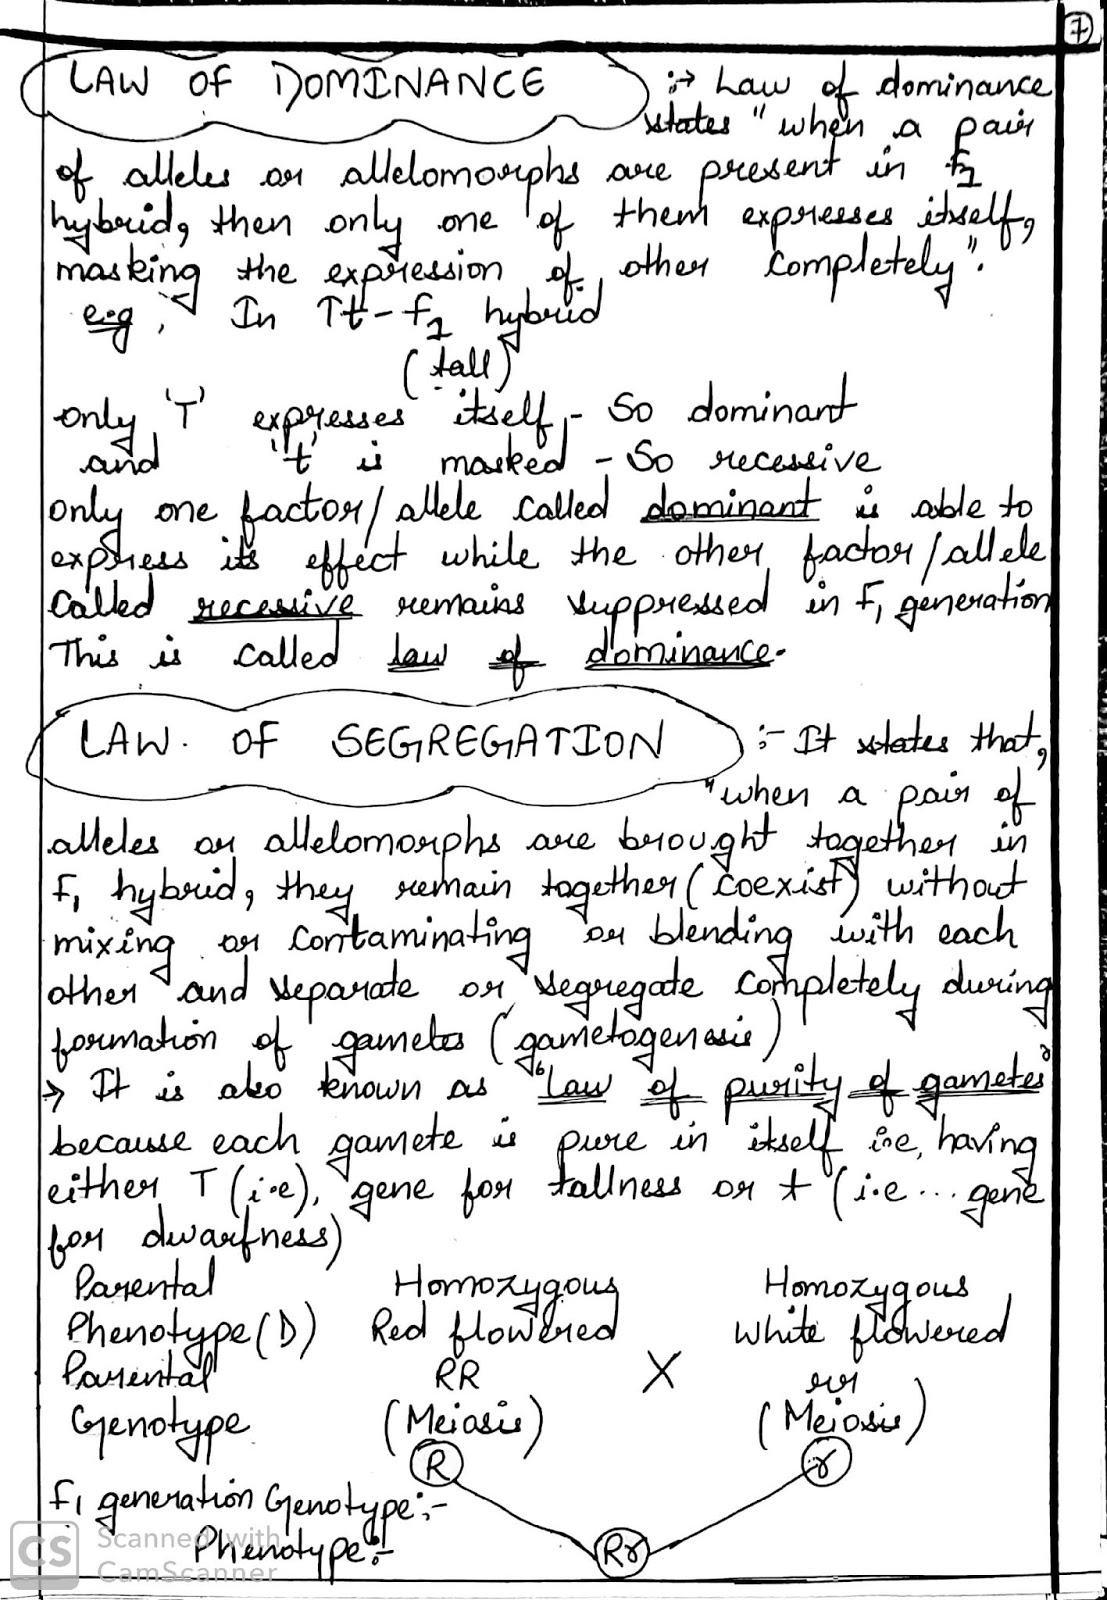 7
LAW OF DOMINANCE :→ Law of dominance
states "when a pair
of alleles or allelomorphs are present in F1
hybrid, then only one of them expresses itself,
masking the expression of other completely".
e.g, In Tt - F1 hybrid
(tall)
only 'T' expresses itself - So dominant
and 't' is masked - So recessive
only one factor/allele called dominant is able to
express its effect while the other factor/allele
called recessive remains suppressed in F1 generation
This is called law of dominance.
LAW. OF SEGREGATION :- It states that,
"when a pair of
alleles or allelomorphs are brought together in
F1 hybrid, they remain together (coexist) without
mixing or contaminating or blending with each
other and separate or segregate completely during
formation of gametes (gametogenesis)
→ It is also known as "law of purity of gametes"
because each gamete is pure in itself i.e, having
either T (i.e), gene for tallness or t (i.e... gene
for dwarfness)
Parental Homozygous Homozygous
Phenotype (D) Red flowered White flowered
Parental RR X rr
Genotype (Meiosis) (Meiosis)
R r
F1 generation Genotype:-
Phenotype:- Rr
CS Scanned with
CamScanner